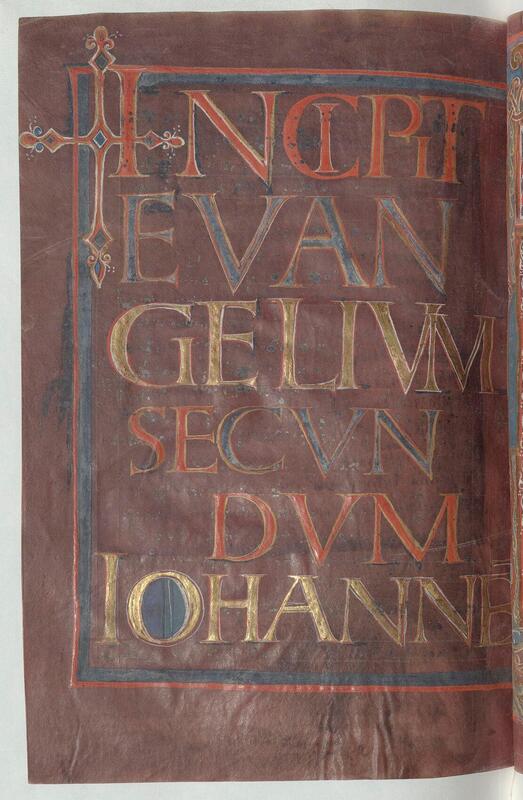 INCIPIT
EVAN
GELIVM
SECVN
DVM
IOHANNE